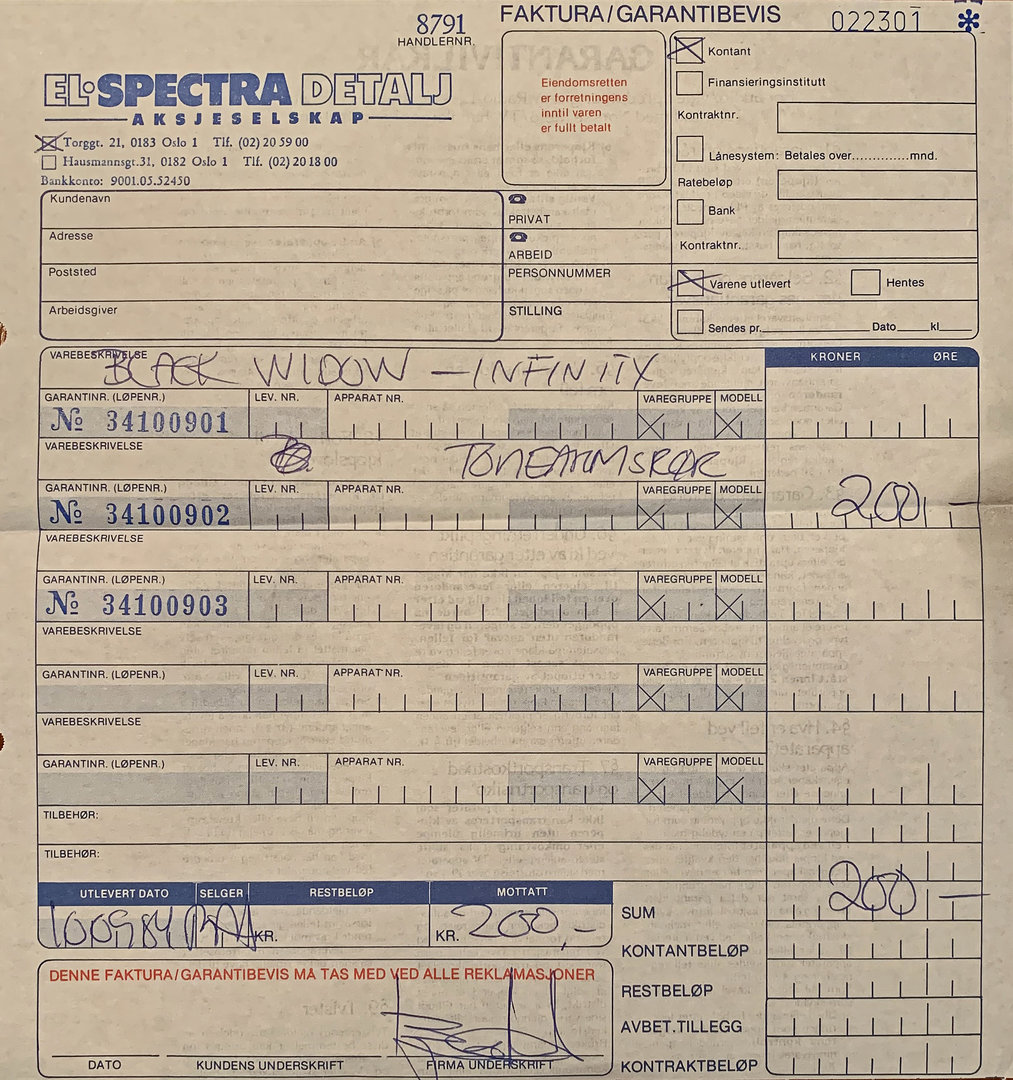 8791
HANDLERNR.
FAKTURA/GARANTIBEVIS
022301 *
EL•SPECTRA DETALJ
AKSJESELSKAP
Torggt. 21, 0183 Oslo 1 Tlf. (02) 20 59 00
Hausmannsgt.31, 0182 Oslo 1 Tlf. (02) 20 18 00
Bankkonto: 9001.05.52450
Eiendomsretten
er forretningens
inntil varen
er fullt betalt
Kontant
Finansieringsinstitutt
Kontraktnr.
Lånesystem: Betales over..............mnd.
Ratebeløp
Bank
Kontraktnr..
Varene utlevert
Hentes
Sendes pr. Dato kl
Kundenavn
PRIVAT
Adresse
ARBEID
Poststed
PERSONNUMMER
Arbeidsgiver
STILLING
VAREBESKRIVELSE
BLACK WIDOW – INFINITY
KRONER ØRE
GARANTINR. (LØPENR.) LEV. NR. APPARAT NR. VAREGRUPPE MODELL
№ 34100901
VAREBESKRIVELSE
TONEARMSRØR
GARANTINR. (LØPENR.) LEV. NR. APPARAT NR. VAREGRUPPE MODELL
№ 34100902
200 –
VAREBESKRIVELSE
GARANTINR. (LØPENR.) LEV. NR. APPARAT NR. VAREGRUPPE MODELL
№ 34100903
VAREBESKRIVELSE
GARANTINR. (LØPENR.) LEV. NR. APPARAT NR. VAREGRUPPE MODELL
VAREBESKRIVELSE
GARANTINR. (LØPENR.) LEV. NR. APPARAT NR. VAREGRUPPE MODELL
TILBEHØR:
TILBEHØR:
UTLEVERT DATO SELGER RESTBELØP MOTTATT
100984 KR. KR. 200,–
SUM 200 –
KONTANTBELØP
RESTBELØP
AVBET.TILLEGG
KONTRAKTBELØP
DENNE FAKTURA/GARANTIBEVIS MA TAS MED VED ALLE REKLAMASJONER
DATO KUNDENS UNDERSKRIFT FIRMA UNDERSKRIFT